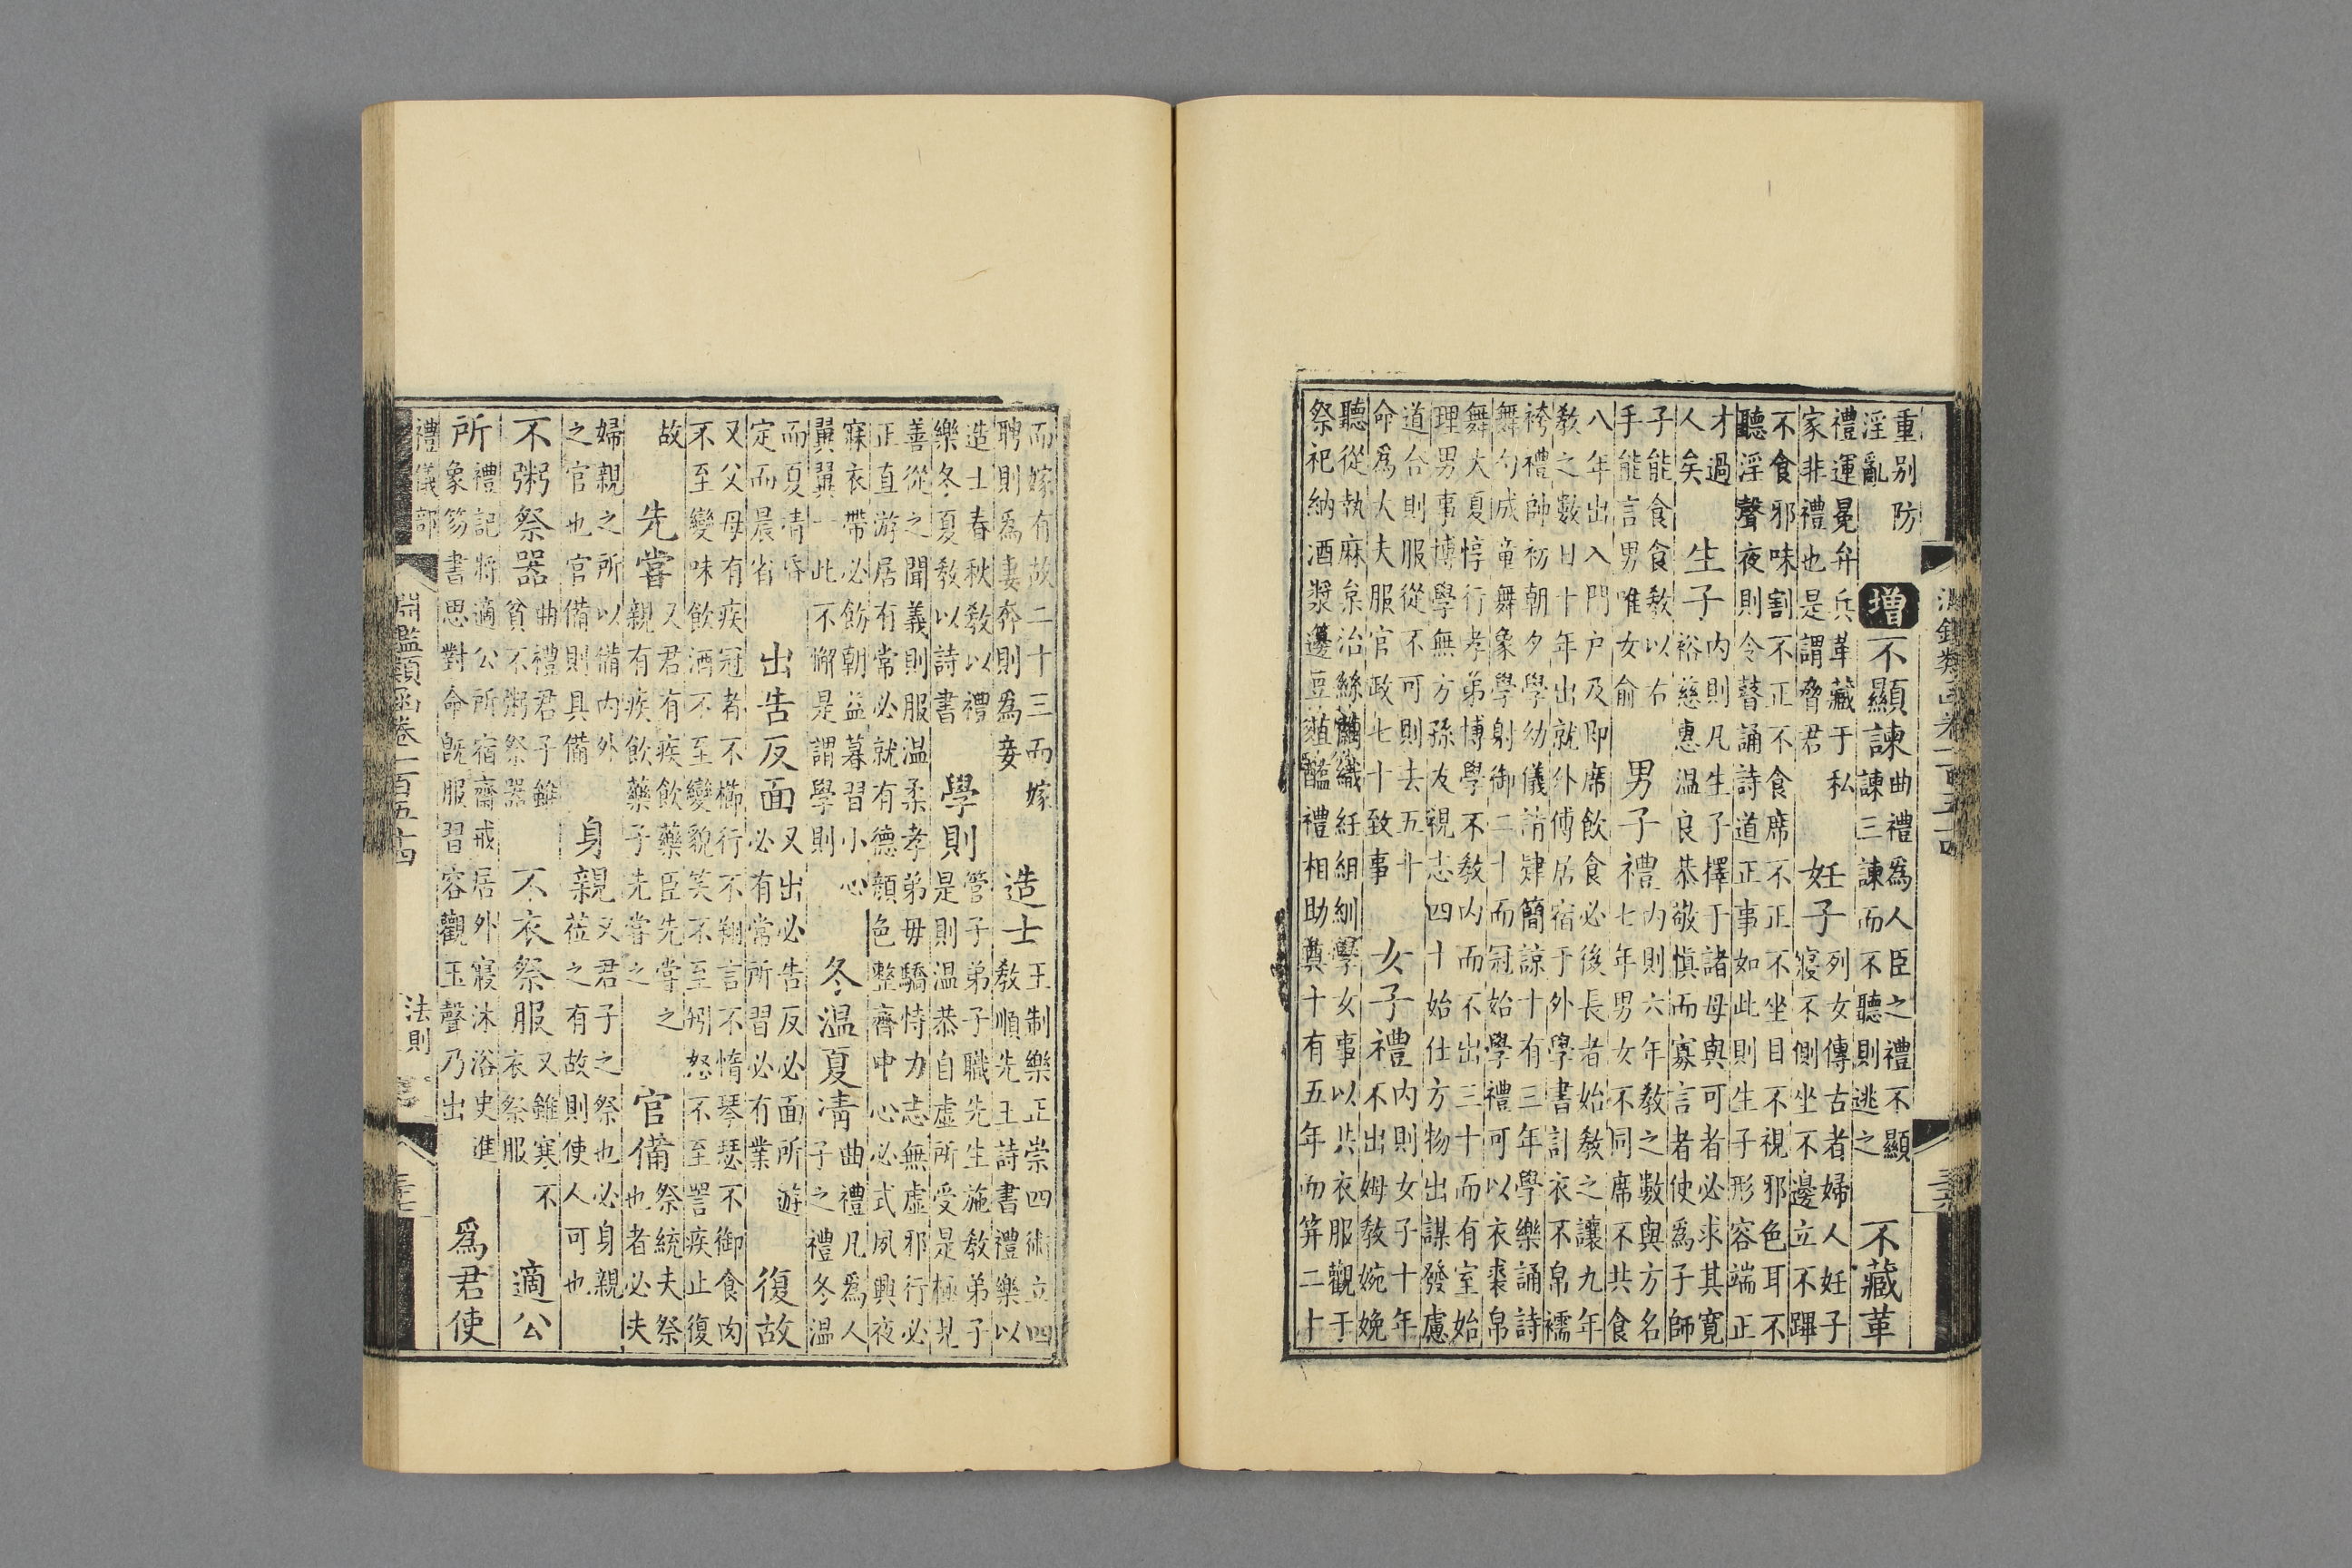 重别防
淫亂
增
不顯諫
曲禮爲人臣之禮不顯
諫三諫而不聽則逃之
不藏革
禮運冕弁兵革藏于私
家非禮也是謂脅君
妊子
列女傳古者婦人妊子
寢不側坐不邊立不蹕
不食邪味割不正不食席不正不坐目不視邪色耳不
聽淫聲夜則令瞽誦詩道正事如此則生子形容端正
才過
人矣
生子
内則凡生子擇于諸母與可者必求其寛
裕慈惠温良恭敬慎而寡言者使爲子師
子能食食教以右
手能言男唯女俞
男子禮
内則六年教之數與方名
七年男女不同席不共食
八年出入門户及即席飲食必後長者始教之讓九年
教之數日十年出就外傅居宿于外學書計衣不帛襦
袴禮帥初朝夕學幼儀請肄簡諒十有三年學樂誦詩
舞勺成童舞象學射御二十而冠始學禮可以衣裘帛
舞大夏惇行孝弟博學不教内而不出三十而有室始
理男事博學無方孫友視志四十始仕方物出謀發慮
道合則服從不可則去五十
命爲大夫服官政七十致事
女子禮
内則女子十年
不出姆教婉娩
聽從執麻枲治絲繭織紝組紃學女事以共衣服觀于
祭祀納酒漿籩豆菹醢禮相助奠十有五年而笄二十
而嫁有故二十三而嫁
聘則爲妻奔則爲妾
造士
王制樂正崇四術立四
教順先王詩書禮樂以
造士春秋教以禮
樂冬夏教以詩書
學則
管子弟子職先生施教弟子
是則温恭自虚所受是極見
善從之聞義則服温柔孝弟毋驕恃力志無虚邪行必
正直游居有常必就有德顔色整齊中心必式夙興夜
寐衣帶必飭朝益暮習小心
翼翼一此不懈是謂學則
冬温夏凊
曲禮凡爲人
子之禮冬温
而夏凊昏
定而晨省
出告反面
又出必告反必面所遊
必有常所習必有業
復故
又父母有疾冠者不櫛行不翔言不惰琴瑟不御食肉
不至變味飲酒不至變貌笑不至矧怒不至詈疾止復
故
先嘗
又君有疾飲藥臣先嘗之
親有疾飲藥子先嘗之
官備
祭統夫祭
也者必夫
婦親之所以備内外
之官也官備則具備
身親莅
又君子之祭也必身親
之有故則使人可也
不粥祭器
曲禮君子雖
貧不粥祭器
不衣祭服
又雖寒不
衣祭服
適公
所
禮記將適公所宿齋戒居外寢沐浴史進
象笏書思對命既服習容觀玉聲乃出
爲君使
禮儀部
淵鑑類函卷一百五十四
法則